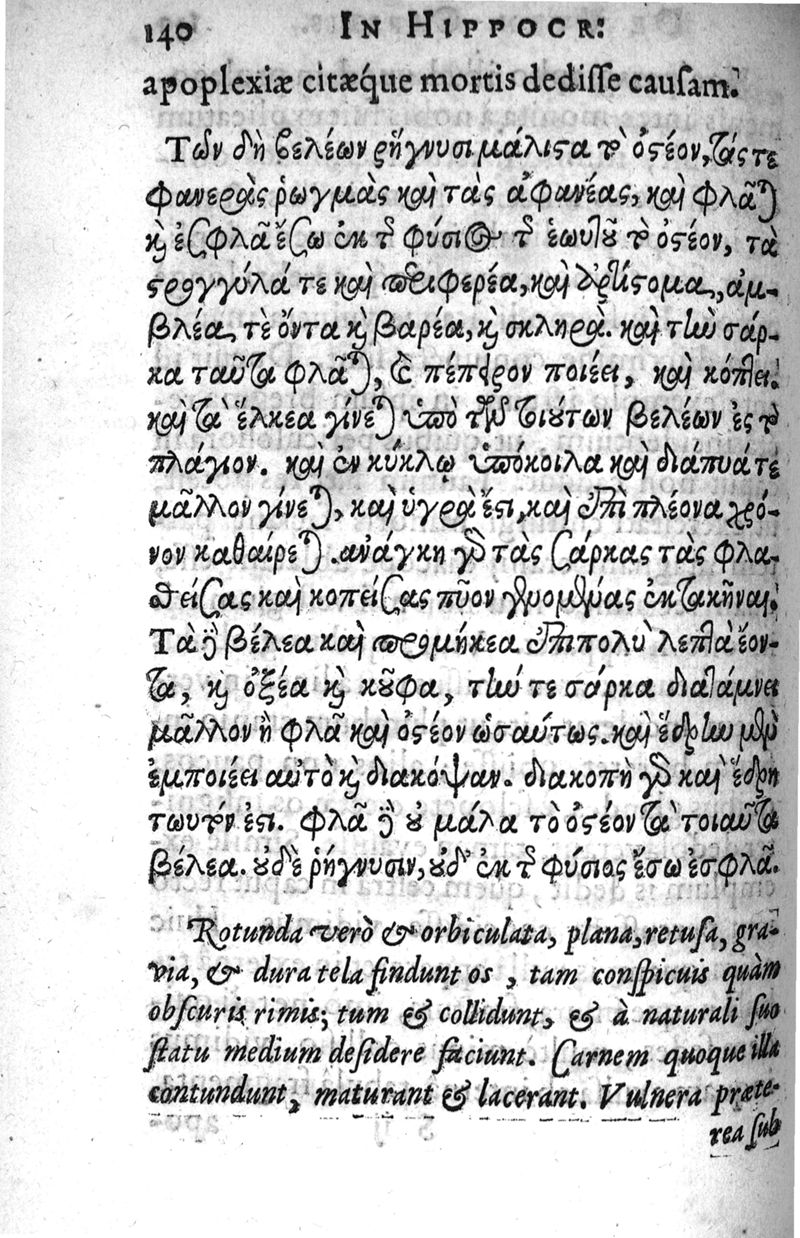 140 IN HIPPOCR:
apoplexiæ citæque mortis dedisse causam.
Τῶν δὴ βελέων ῥήγνυσι μάλιστα τὸ ὀστέον, τάς τε
φανερὰς ῥωγμὰς καὶ τὰς ἀφανέας, καὶ φλᾶται
καὶ ἐσφλᾶ ἔσω ἐκ τῆς φύσιος τῆς ἑωυτοῦ τὸ ὀστέον, τὰ
στρογγύλά τε καὶ περιφερέα, καὶ ἀρτίστομα, ἀμ-
βλέα, τὲ ὄντα καὶ βαρέα, καὶ σκληρά. καὶ τὴν σάρ-
κα ταῦτα φλᾶται, καὶ πέπειρον ποιέει, καὶ κόπτει.
καὶ τὰ ἕλκεα γίνεται ὑπὸ τῶν τοιούτων βελέων ἐς τὸ
πλάγιον. καὶ ἐν κύκλῳ ὑπόκοιλα καὶ διάπυά τε
μᾶλλον γίνεται, καὶ ὑγρὰ ἔστι, καὶ ἐπὶ πλέονα χρό-
νον καθαίρεται. ἀνάγκη γὰρ τὰς σάρκας τὰς φλα-
θείσας καὶ κοπείσας πῦον γενομένας ἐκτακῆναι.
Τὰ δὲ βέλεα καὶ προμήκεα ἐπιπολὺ λεπτὰ ἔον-
τα, καὶ ὀξέα καὶ κοῦφα, τήν τε σάρκα διατάμνει
μᾶλλον ἢ φλᾶ καὶ ὀστέον ὡσαύτως. καὶ ἕδρην μὲν
ἐμποιέει αὐτὸ καὶ διακόψαν. διακοπὴ γὰρ καὶ ἕδρη
τωυτόν ἐστι. φλᾶ δὲ οὐ μάλα τὸ ὀστέον τὰ τοιαῦτα
βέλεα. οὐδὲ ῥήγνυσιν, οὐδ' ἐκ τῆς φύσιος ἔσω ἐσφλᾶ.
Rotunda verò & orbiculata, plana, retusa, gra-
via, & dura tela findunt os, tam conspicuis quàm
obscuris rimis; tum & collidunt, & à naturali suo
statu medium desidere faciunt. Carnem quoque illa
contundunt, maturant & lacerant. Vulnera præte-
rea sub